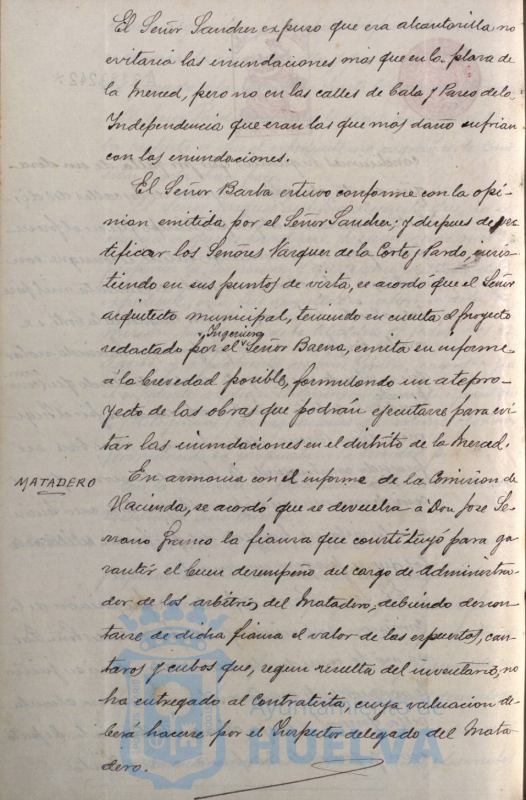 El Señor Sanchez expuso que esa alcantarilla no
evitaria las inundaciones mas que en la plaza de
la Merced, pero no en las calles de Cala y Paseo de la
Independencia que eran las que mas daño sufrian
con las inundaciones.
El Señor Barba estuvo conforme con la opi-
nion emitida por el Señor Sanchez; y despues de rec-
tificar los Señores Vazquez de la Corte y Pardo, insis-
tiendo en sus puntos de vista, se acordó que el Señor
arquitecto municipal, teniendo en cuenta el proyecto
Ingeniero
redactado por el Señor Baena, emita su informe
á la brevedad posible, formulando un atepro-
yecto de las obras que podrán ejecutarse para evi-
tar las inundaciones en el distrito de la Merced.
MATADERO
En armonia con el informe de la Comision de
Hacienda, se acordó que se devuelva á Don Jose Se-
rrano Franco la fianza que constituyó para ga-
rantir el buen desempeño del cargo de Administra-
dor de los arbitrios del Matadero, debiendo descon-
tarse de dicha fianza el valor de las espuertas, can-
taros y cubos que, segun resulta del inventario, no
ha entregado al Contratista, cuya valuacion de-
berá hacerse por el Inspector delegado del Mata-
dero.
HUELVA